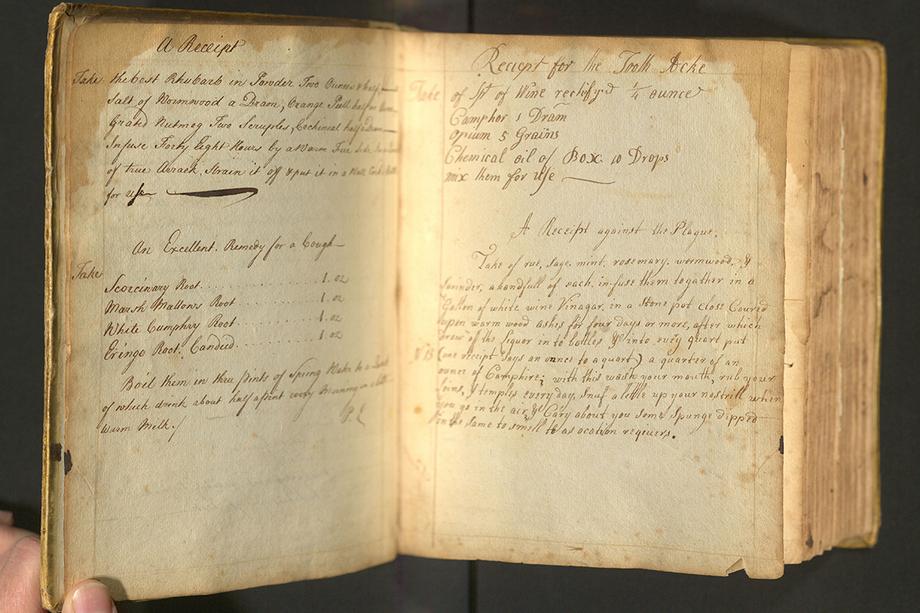 A Receipt
Take the best Rhubarb in Powder Two Ounces & half
Salt of Wormwood a Dram, Orange Peell half an
Grated Nutmeg Two Scruples, Cochineal half a Dram
Infuse Forty Eight Hours by a Warm Fire Side
of true Arrack, Strain it off & put it in a
for use
An Excellent Remedy for a Cough
Take
Scorcinary Root . . . . . . . . . . 1. oz
Marsh Mallows Root . . . . . . . . 1. oz
White Cumphry Root . . . . . . . . 1. oz
Eringo Root. Candied . . . . . . . . 1. oz
Boil them in three pints of Spring Water to a
of which drink about half a pint every Morning in a little
warm Milk.
Reciept for the Tooth Acke
Take of Spt of Wine rectify'd 1/4 ounce
Camphor 1 Dram
Opium 5 Grains
Chemical oil of Box 10 Drops
mix them for use
A Receipt against the Plague.
Take of rue, sage, mint, rosemary, wormwood, &
lavender, a handfull of each, infuse them together in a
Gallon of white wine Vinagar, in a Stone pot close Covered
upon warm wood ashes for four days or more, after which
draw of the liquor in to bottles & into every quart put
NB (one receipt says an ounce to a quart) a quarter of an
ounce of Camphire; with this wash your mouth, rub your
loins, & temples every day, snuf a little up your nostrill when
you go in the air, & Cary about you some spunge dipped
in the same to smell to as ocation requiers.